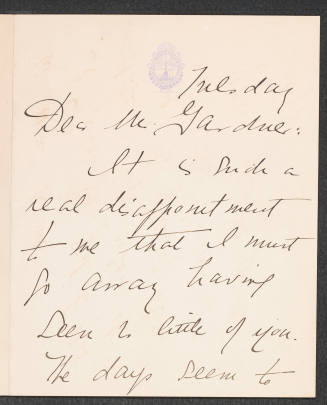 Tuesday
Dear Mr. Gardner:
It is such a
real disappointment
to me that I must
go away having
seen so little of you.
The days seem to